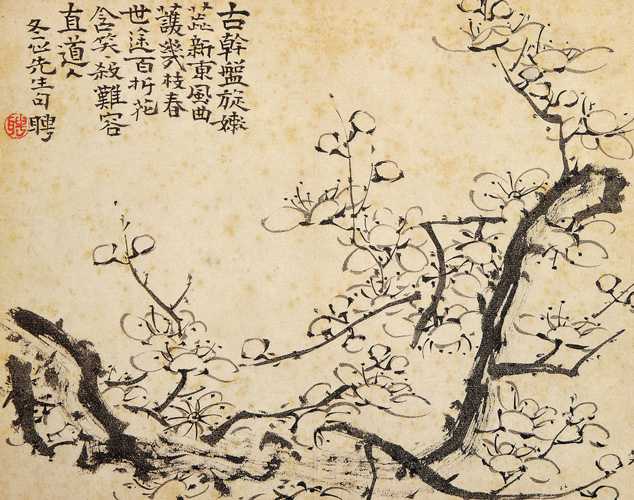 古幹盤旋嫩
蕊新東風曲
護幾枝春
世途百折花
含笑殺難容
直道人
冬心先生句 聘
聘